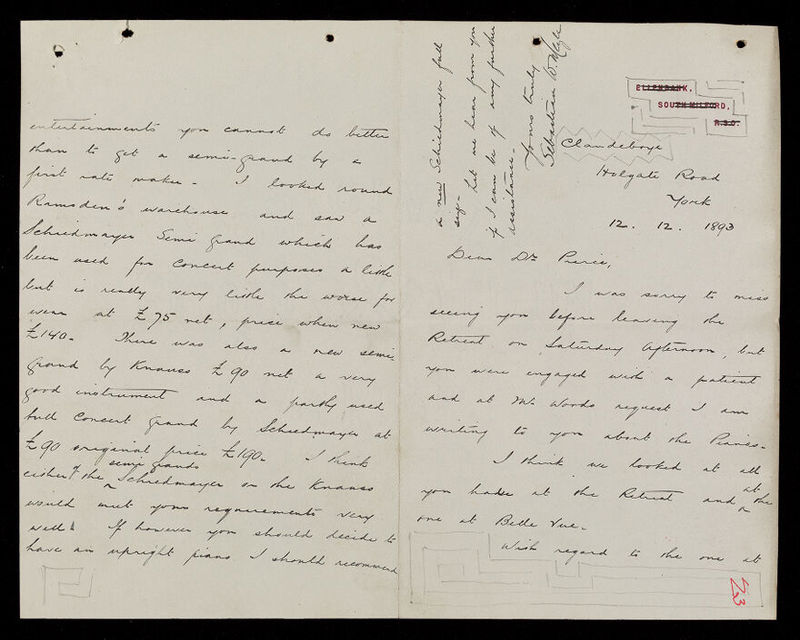 ELLENBANK.
SOUTH MILFORD.
R.S.O.
Clandeboye
Holgate Road
York
12. 12. 1893
Dear Dr. Pierce,
I was sorry to miss
seeing you before leaving the
Retreat on Saturday afternoon, but
you were engaged with a patient
and at Mr Woods request I am
writing to you about the Pianos.
I think we looked at all
you have at the Retreat and at the
one at Belle Vue.
With regard to the one at
53
entertainments you cannot do better
than to get a semi-grand by a
first rate maker. I looked round
Ramsden's warehouse and saw a
Schiedmayer Semi Grand which has
been used for Concert purposes a little
but is really very little the worse for
wear at £75 net, price when new
£140. There was also a new semi-
grand by Knauss £90 net a very
good instrument and a partly used
full Concert Grand by Schiedmayer at
£90 original price £190. I think
either of the semi grands Schiedmayer or the Knauss
would meet your requirements very
well. If however you should decide to
have an upright piano I should recommend
a new Schiedmayer full
size. Let me hear from you
if I can be of any further
assistance.
Yours truly
Sebastian W.